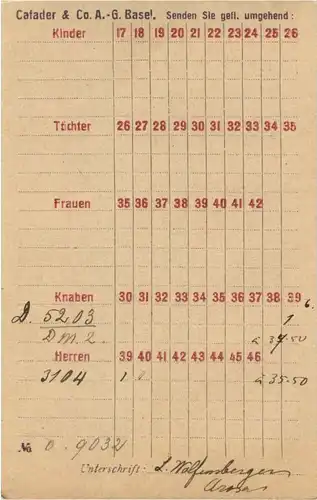 Cafader & Co. A.-G. Basel. Senden Sie gefl. umgehend:
Kinder 17 18 19 20 21 22 23 24 25 26
Töchter 26 27 28 29 30 31 32 33 34 35
Frauen 35 36 37 38 39 40 41 42
Knaben 30 31 32 33 34 35 36 37 38 39
D. 5203 1
D M 2.
Herren 39 40 41 42 43 44 45 46
3104 1 à 35.50
№ 0.9032
Unterschrift: L. Wolfensberger
Arosa